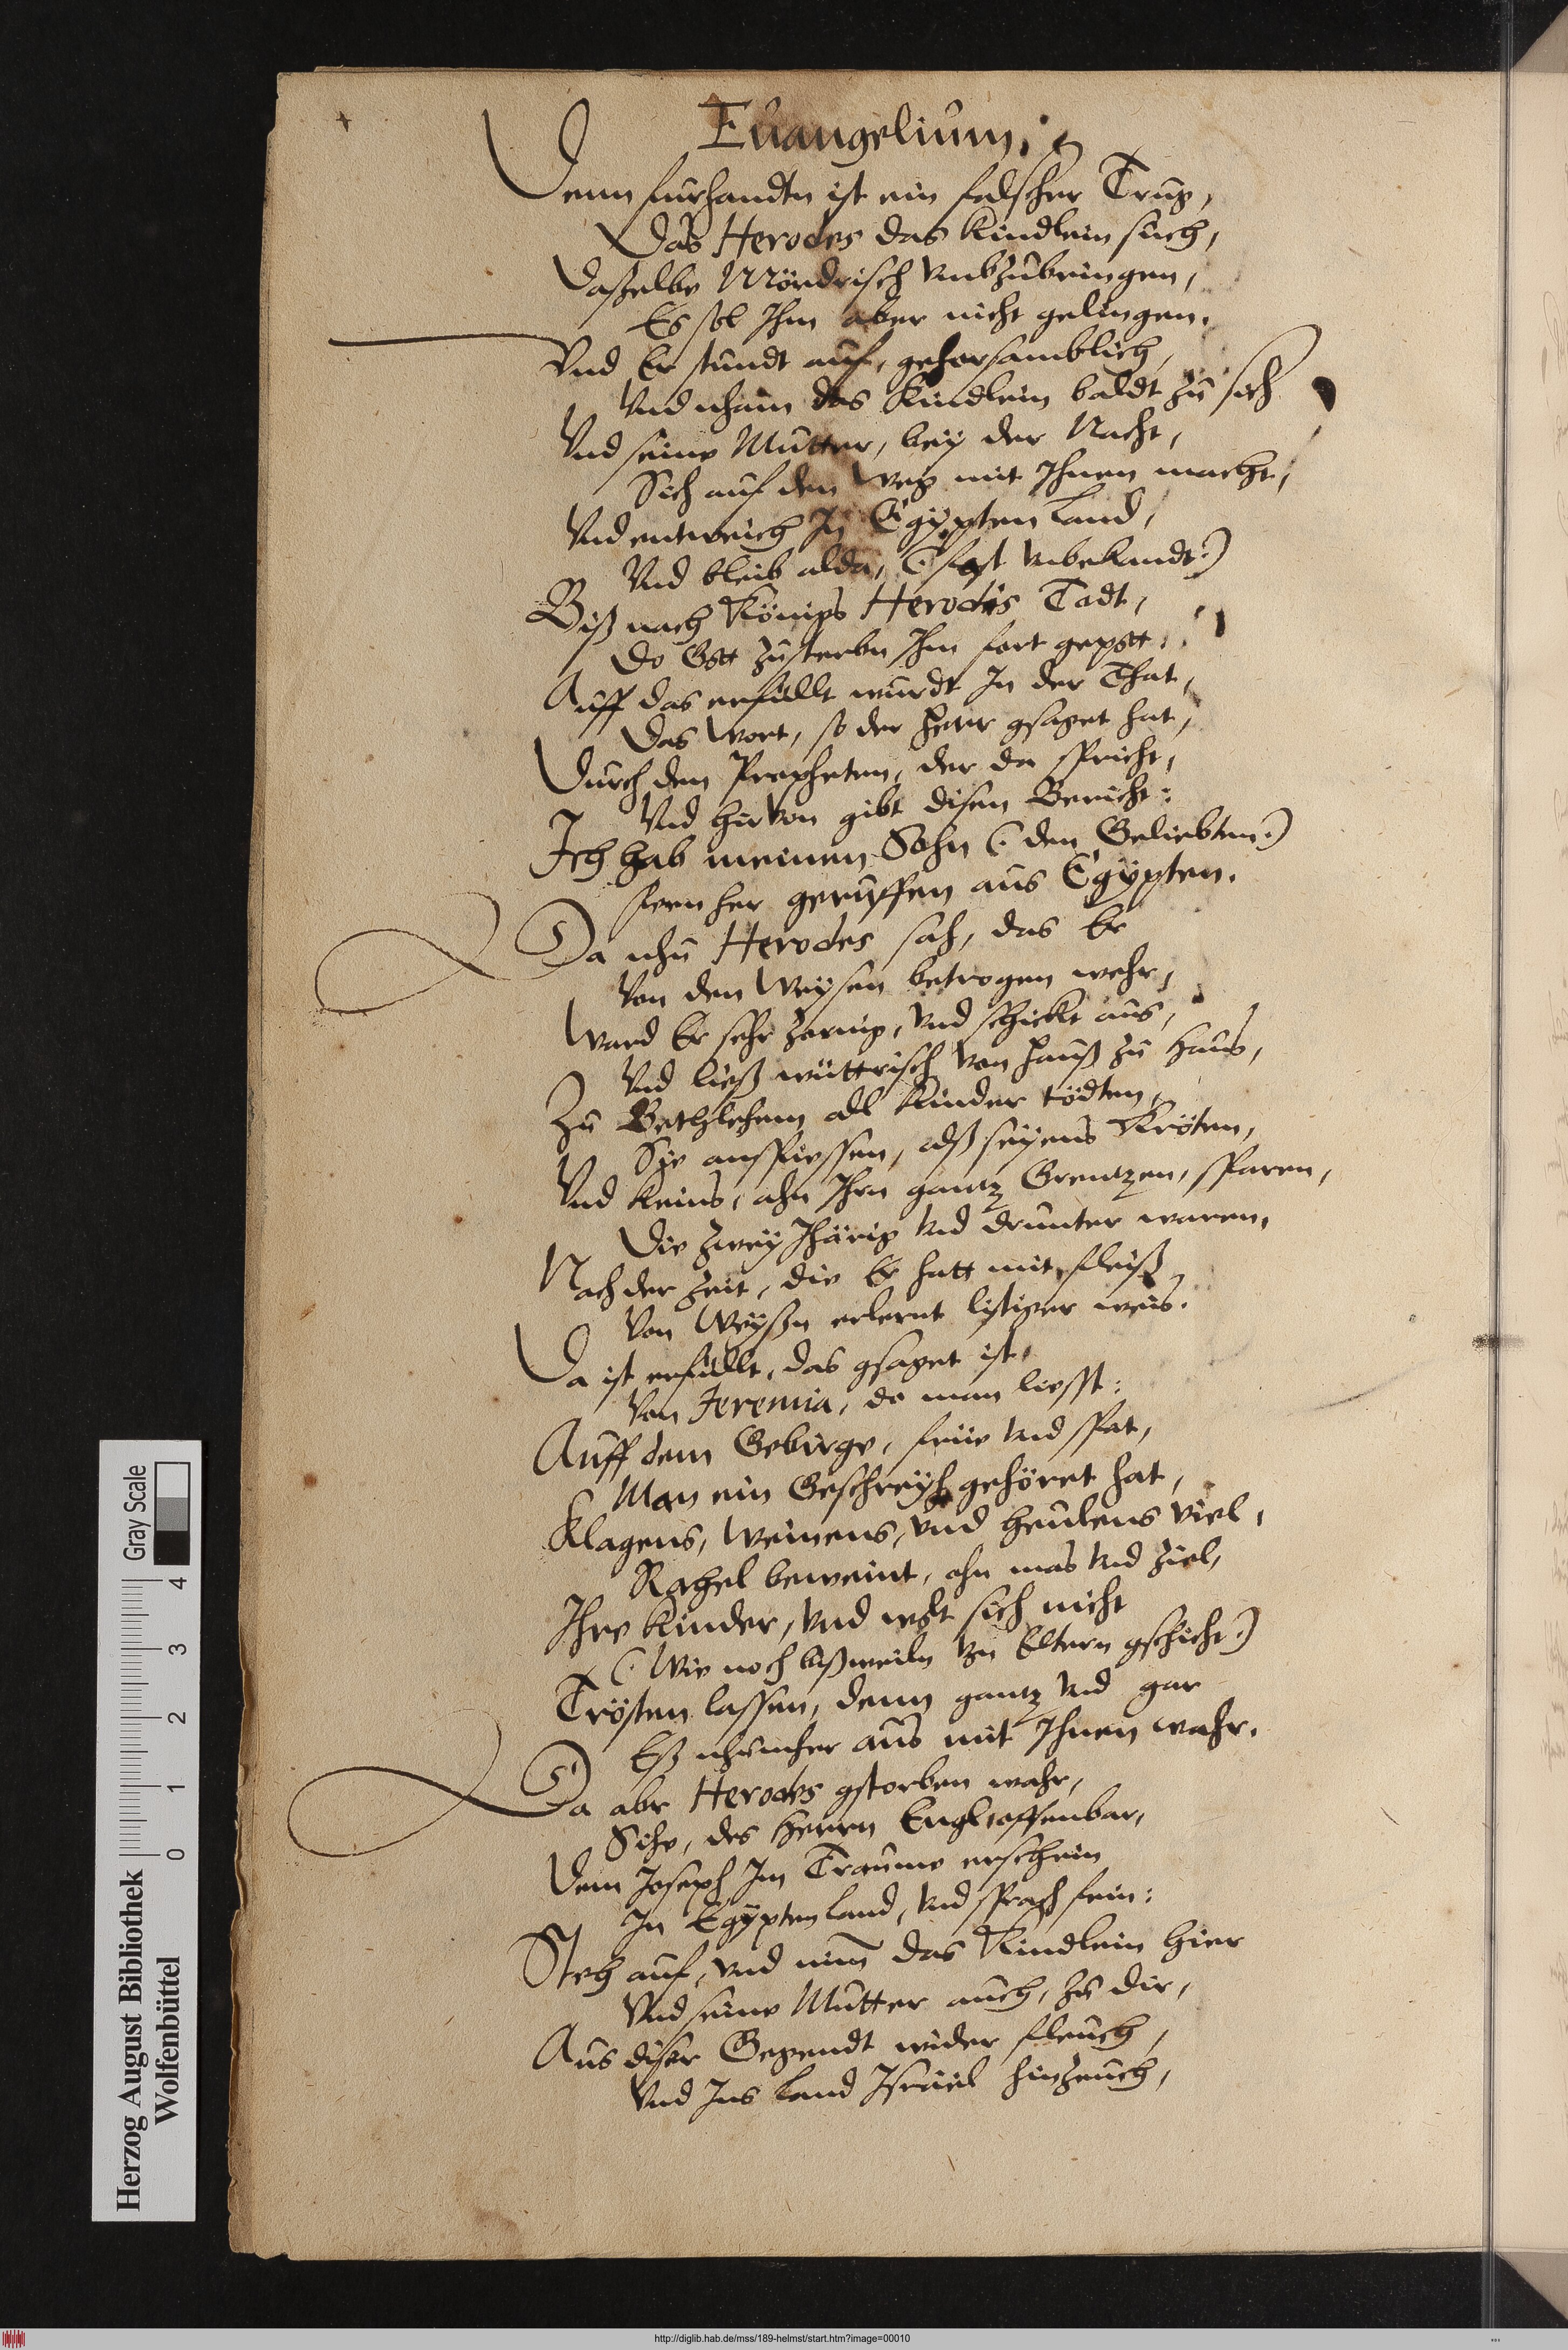 Euangelium.
Denn furhandtn ist ein falscher Trug,
Das Herodes das Kindlein such,
Daßelbe Mördrisch vmbzubringen,
Es sol Ihm aber nicht gelingen.
Vnd Er stundt auf, gehorsamblich,
Vnd nham das Kindlein baldt zu sich
Vnd seine Mutter, bey der Nacht,
Sich auf den Weg mit Ihnen macht,
Vnd entweich In Egypten Land,
Vnd bleib alda, (: fast vnbekandt:)
Biß nach Königs Herodis Todt,
Do Gott zusterbn Ihm hart gepott.
Auff das erfüllt wurdt In der That,
Das Wort, so der Herr gsaget hat,
Durch den Propheten, der da spricht,
Vnd hirvon gibt disen Bericht:
Ich hab meinen Sohn (: den Geliebten:)
fern her geruffen aus Egypten.
Da nhu Herodes sah, das Er
Von den Weysen betrogen wehr,
Ward Er sehr zornig, vnd schickt aus,
Vnd ließ wüttrisch von Hauß zu Haus,
Zu Bethlehem all Kinder tödten,
Sye anspiessen, alß seyens Kröten,
Vnd keins, ahn Ihrn gantz Grentzen, sparen,
Die zwey Jhärig vnd drunter waren,
Nach der Zeit, die Er hatt mit fleiß
Von Weyßn erlernt listiger weis.
Da ist erfüllt, das gsaget ist,
Von Jeremia, do man liesst:
Auff dem Gebirge, früe vnd spat,
Man ein Geschreyh gehöret hat,
Klagens, Weinens, vnd heulens viel,
Rahel beweint, ohn mas vnd ziel,
Ihre Kinder, vnd wolt sich nicht
(: Wie noch bißweiln von Eltern gschicht:)
Trösten lassen, denn gantz vnd gar
Eß nhumher aus mit Ihnen wahr.
Da abr Herodes gstorben wahr,
Sihe, des Herrn Engl offenbar,
Dem Joseph Im Traume erschein
In Egypten Land, vnd sprach fein:
Steh auf, vnd nim̄ das Kindlein hier
Vnd seine Mutter auch, zu dir,
Aus diser Gegendt wider fleuch,
Vnd Ins Land Israel hinzeuch,
Herzog August Bibliothek
Wolfenbüttel
Gray Scale
0 1 2 3 4
http://diglib.hab.de/mss/189-helmst/start.htm?image=00010